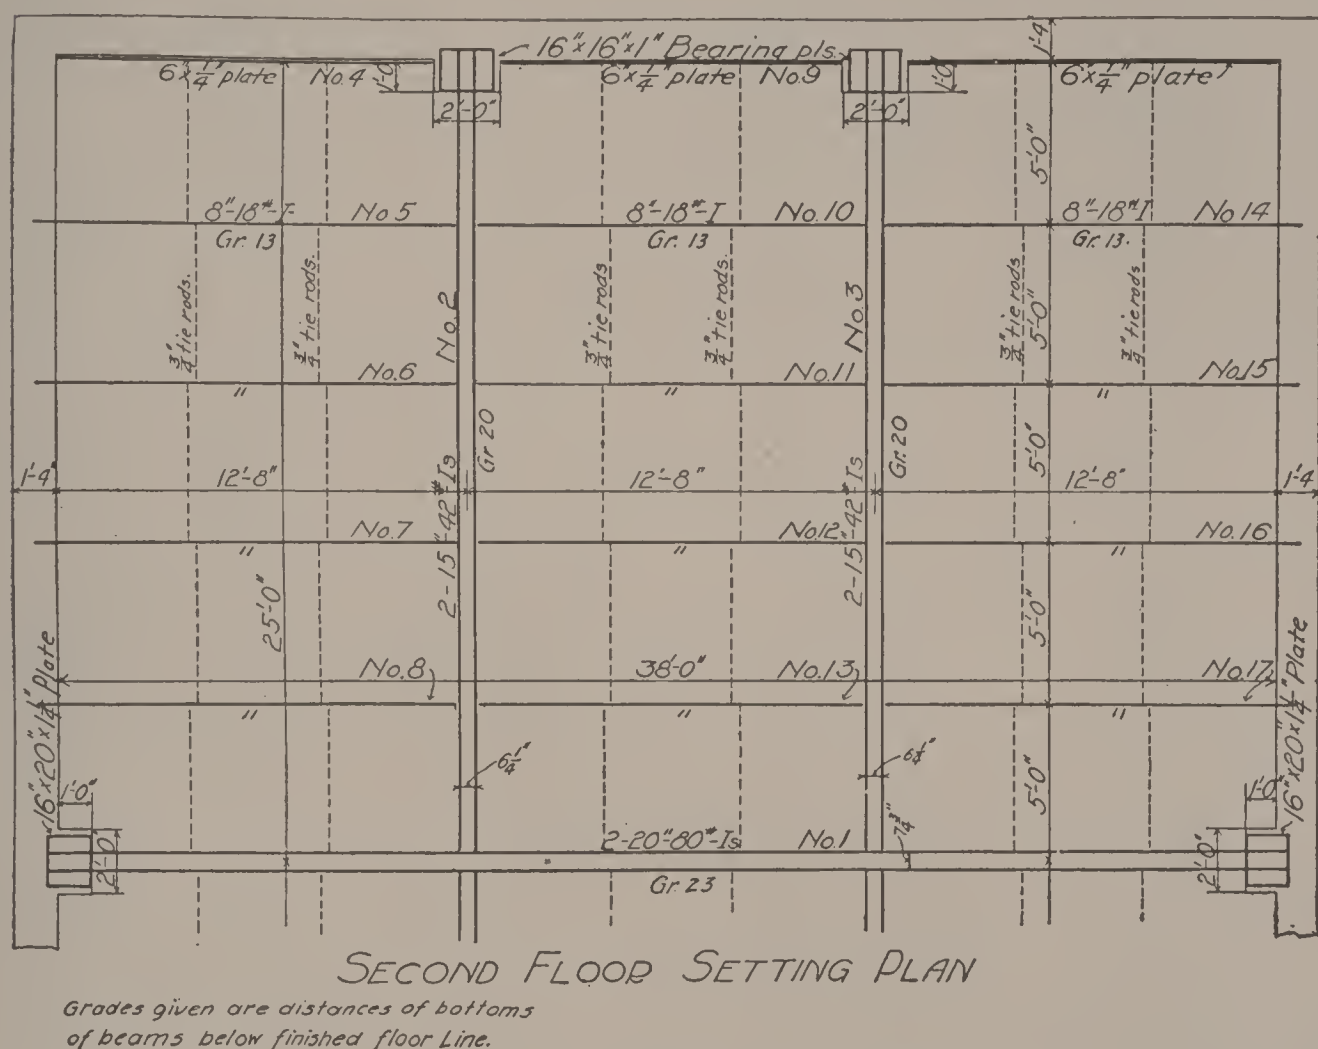 16"x16"x1" Bearing pls.
1'-4"
6"x1/4" plate No.4
1'-0"
6"x1/4" plate No.9
1'-0"
6"x1/4" plate
2'-0"
2'-0"
5'-0"
8"-18#-I No.5
8"-18#-I No.10
8"-18#I No 14
Gr. 13
Gr. 13
Gr. 13.
3/4" tie rods.
3/4" tie rods.
No. 2
3/4" tie rods
3/4" tie rods.
No. 3
3/4" tie rods
5'-0"
3/4" tie rods.
No.6
No.11
No.15
"
"
"
Gr 20
Gr. 20
5'-0"
1'-4"
12'-8"
12'-8"
12'-8"
1'-4"
2-15"-42#-Is
2-15"-42#-Is
No.7
No.12
No.16
"
"
"
25'-0"
5'-0"
No.8
38'-0"
No.13
No.17
"
"
"
16"x20"x1 1/4" Plate
16"x20"x1 1/4" Plate
6 1/4"
6 1/4"
5'-0"
1'-0"
1'-0"
2'-0"
2-20"-80#-Is No.1
7 3/4"
2'-0"
Gr. 23
SECOND FLOOR SETTING PLAN
Grades given are distances of bottoms
of beams below finished floor Line.